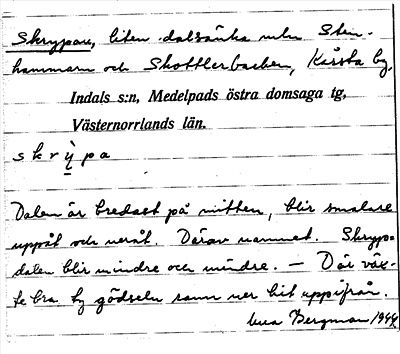 Skrypan, liten dalsänka mln Sten-
hammarn och Skottlerbacken, Kärsta by,
Indals s:n, Medelpads östra domsaga tg,
Västernorrlands län.
skrỳpa
Dalen är bredast på mitten, blir smalare
uppåt och neråt. Därav namnet. Skryp-
dalen blir mindre och mindre. — Där väx-
te bra ty gödseln rann ner hit uppifrån.
Bergman 1944